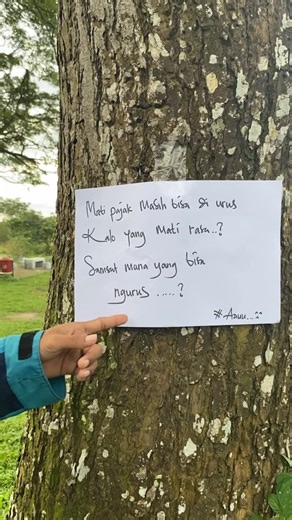 Mati pajak Masih bisa di urus
Kalo yang Mati rasa..?
Samsat mana yang bisa
ngurus .....?